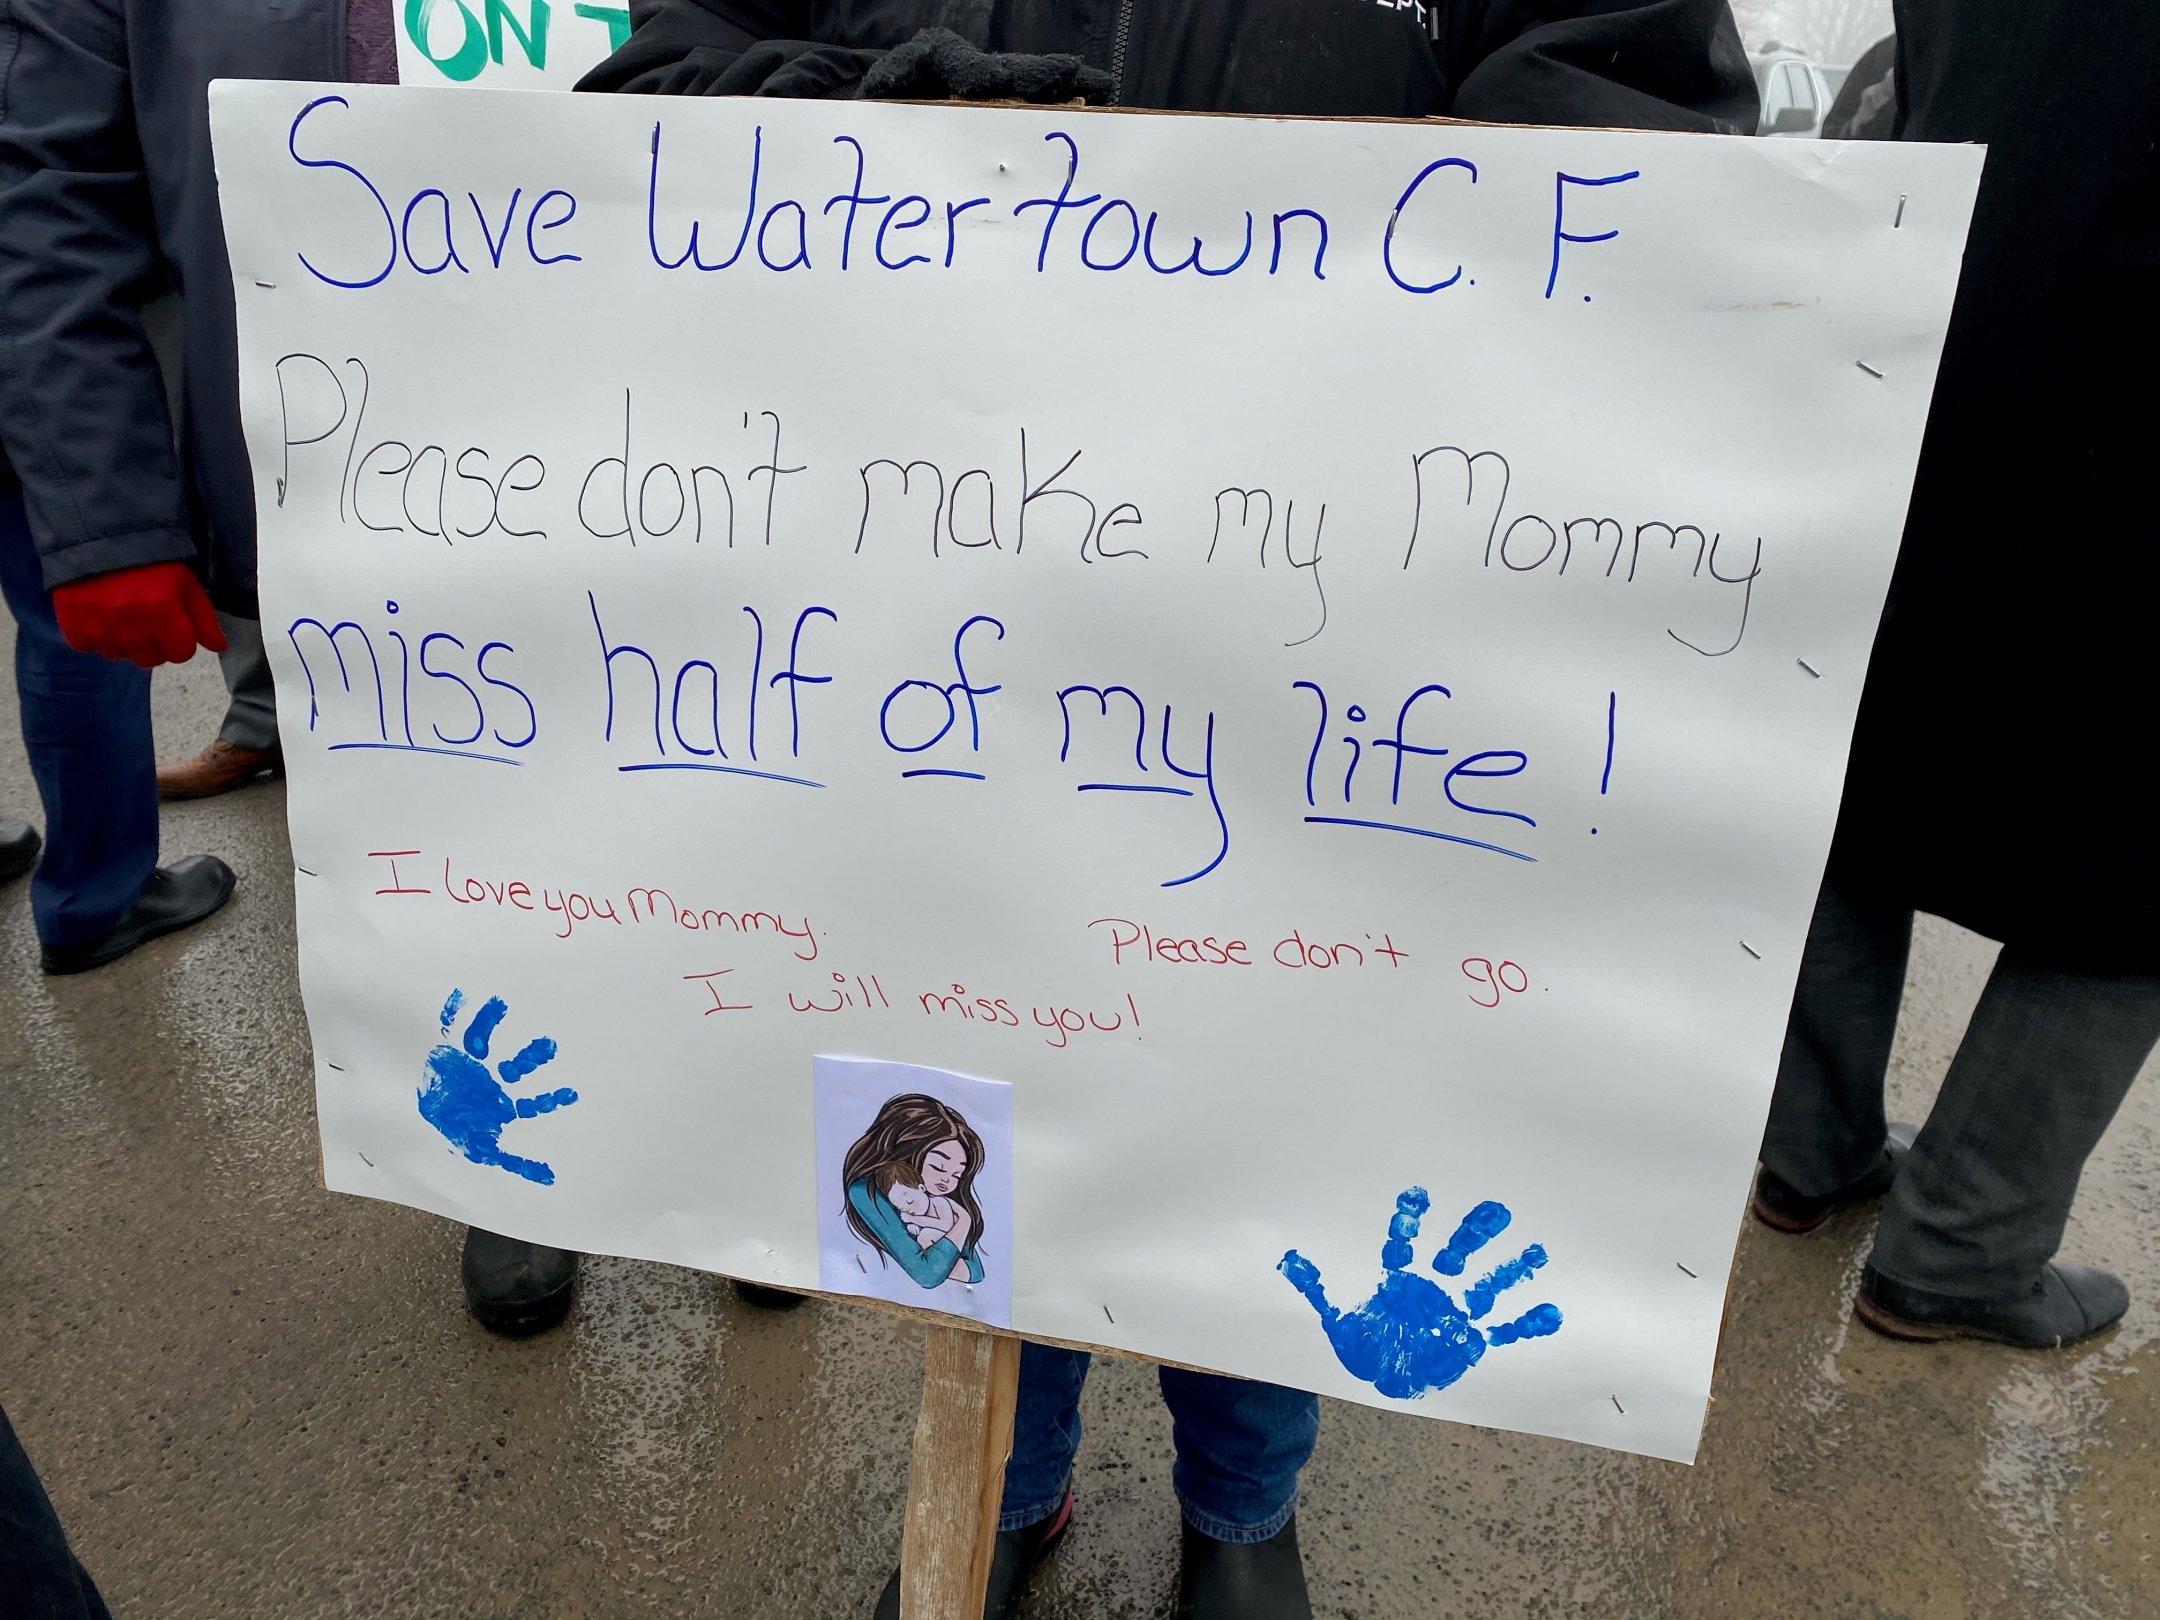 ON T
Save Watertown C.F.
Please don't make my Mommy
miss half of my life!
I love you Mommy.
Please don't go.
I will miss you!